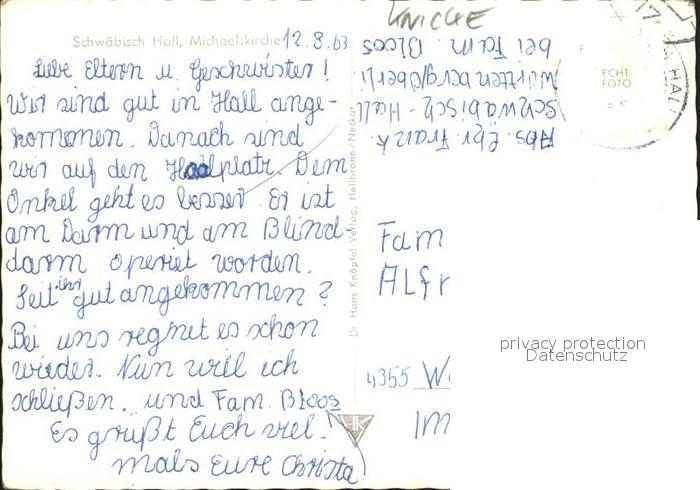 KNICKE
Schwäbisch Hall, Michaelskirche
12.8.63
Liebe Eltern u. Geschwister!
Wir sind gut in Hall ange-
kommen. Danach sind
wir auf den Haalplatz. Dem
Onkel geht es besser. Er ist
am Darm und am Blind-
darm operiet worden.
Seit ihr gut angekommen?
Bei uns regnet es schon
wieder. Nun will ich
schließen. und Fam. Bloos
Es grüßt Euch viel-
mals Eure Christa
Dr. Hans Knöpfel Verlag, Heilbronn/Neckar
HK
Abs. Chr. Frank
Schwäbisch-Hall
Württenberg/Oberli
bei Fam. Bloos
ECHT-
FOTO
17
HALL
Fam
Alfr
4355 W
Im
privacy protection
Datenschutz